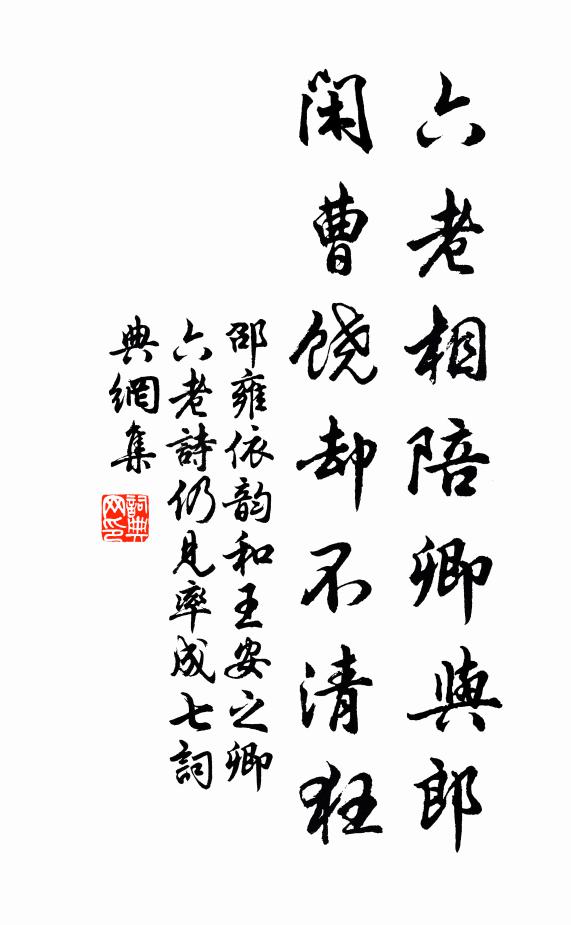 六老相陪卿與郎
闲曹饶却不清狂
邵雍依韵和王安之卿
六老詩仍見率成七詞
典網集
詞典网印